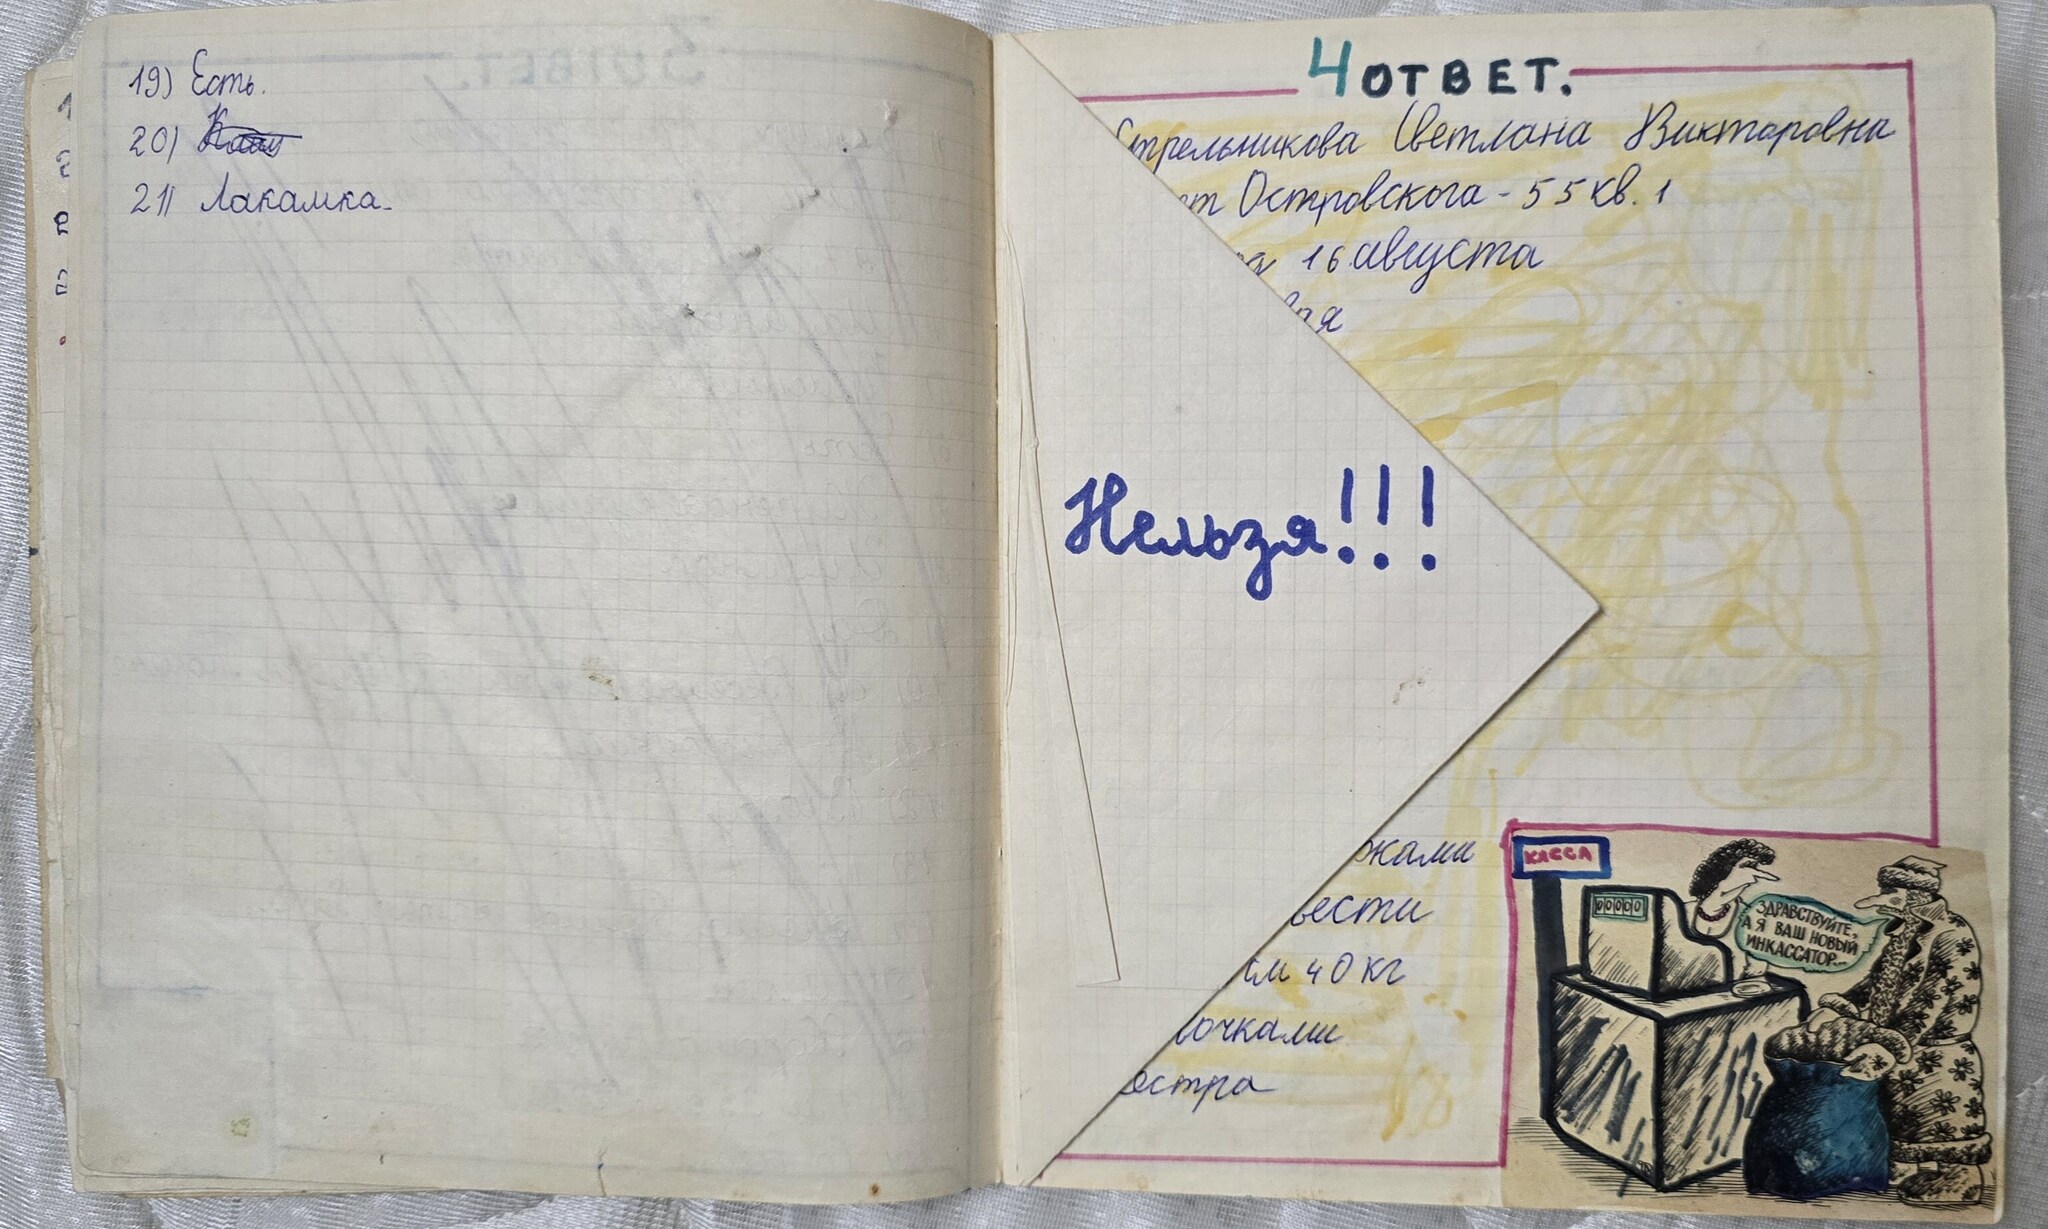 19) Есть.
20)
21) Лакамка.
4 ОТВЕТ.
Стрельникова Светлана Викторовна
ет Островского - 55 кв. 1
да 16 августа
Нельзя!!!
жками
вести
см 40 кг
очками
остра
КАССА
00000
ЗДРАВСТВУЙТЕ,
А Я ВАШ НОВЫЙ
ИНКАССАТОР...